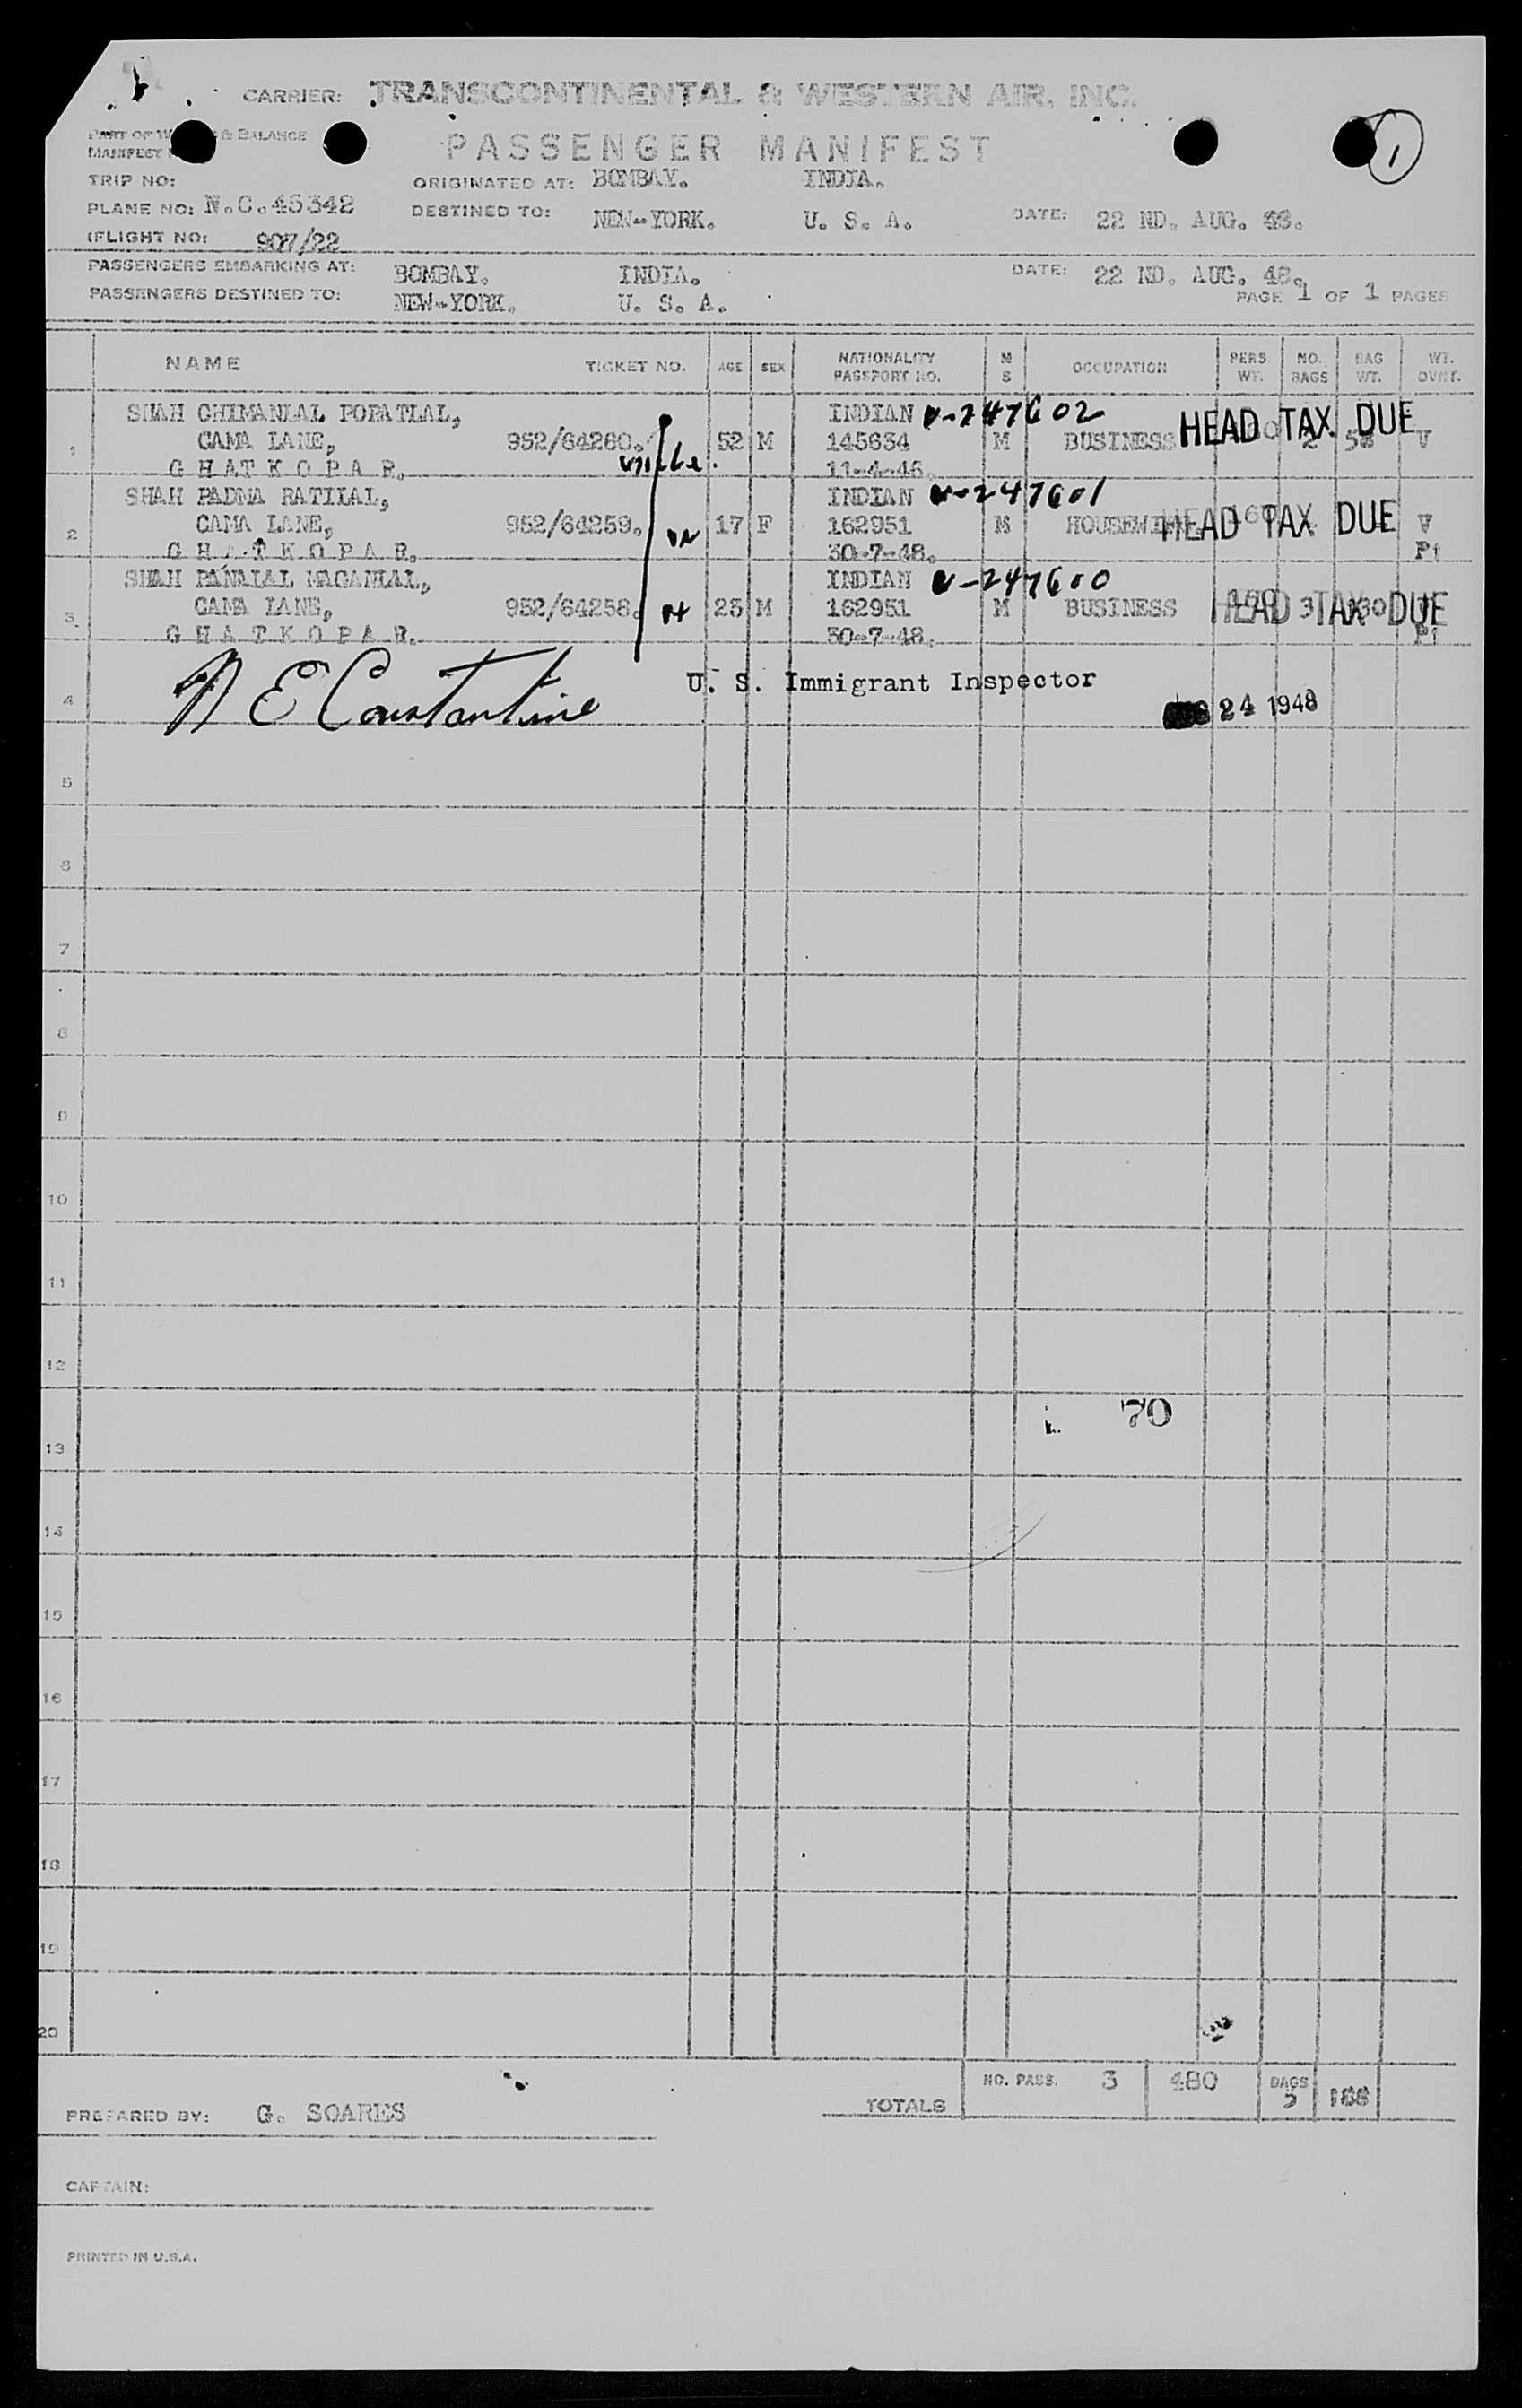 CARRIER: TRANSCONTINENTAL & WESTERN AIR, INC.
PART OF & BALANCE
MANIFEST
PASSENGER MANIFEST
1
TRIP NO:
ORIGINATED AT: BOMBAY. INDIA.
PLANE NO: N.C.45342
DESTINED TO: NEW-YORK. U. S. A. DATE: 22 ND. AUG. 48.
FLIGHT NO: 907/22
PASSENGERS EMBARKING AT: BOMBAY. INDIA. DATE: 22 ND. AUG. 48.
PASSENGERS DESTINED TO: NEW-YORK. U. S. A. PAGE 1 OF 1 PAGES
NAME TICKET NO. AGE SEX NATIONALITY PASSPORT NO. M S OCCUPATION PERS. WT. NO. BAGS BAG WT. WT. OVNT.
SHAH CHIMANLAL POPATLAL, INDIAN V-247602
1 CAMA LANE, 952/64260. 52 M 145634 M BUSINESS HEAD TAX DUE V
GHATKOPAR. 11-4-46.
SHAH PADMA RATILAL, INDIAN V-247601
2 CAMA LANE, 952/64259. 17 F 162951 M HOUSEWIFE HEAD TAX DUE V
GHATKOPAR. 30-7-48. P1
SHAH PANALAL MAGANLAL, INDIAN V-247600
3 CAMA LANE, 952/64258. 25 M 162951 M BUSINESS HEAD TAX DUE
GHATKOPAR. 30-7-48. P1
4 N E Constantine U. S. Immigrant Inspector 24 1948
5
6
7
8
9
10
11
12
70
13
14
15
16
17
18
19
20
TOTALS NO. PASS. 3 480 BAGS 5 166
PREPARED BY: G. SOARES
CAPTAIN:
PRINTED IN U.S.A.